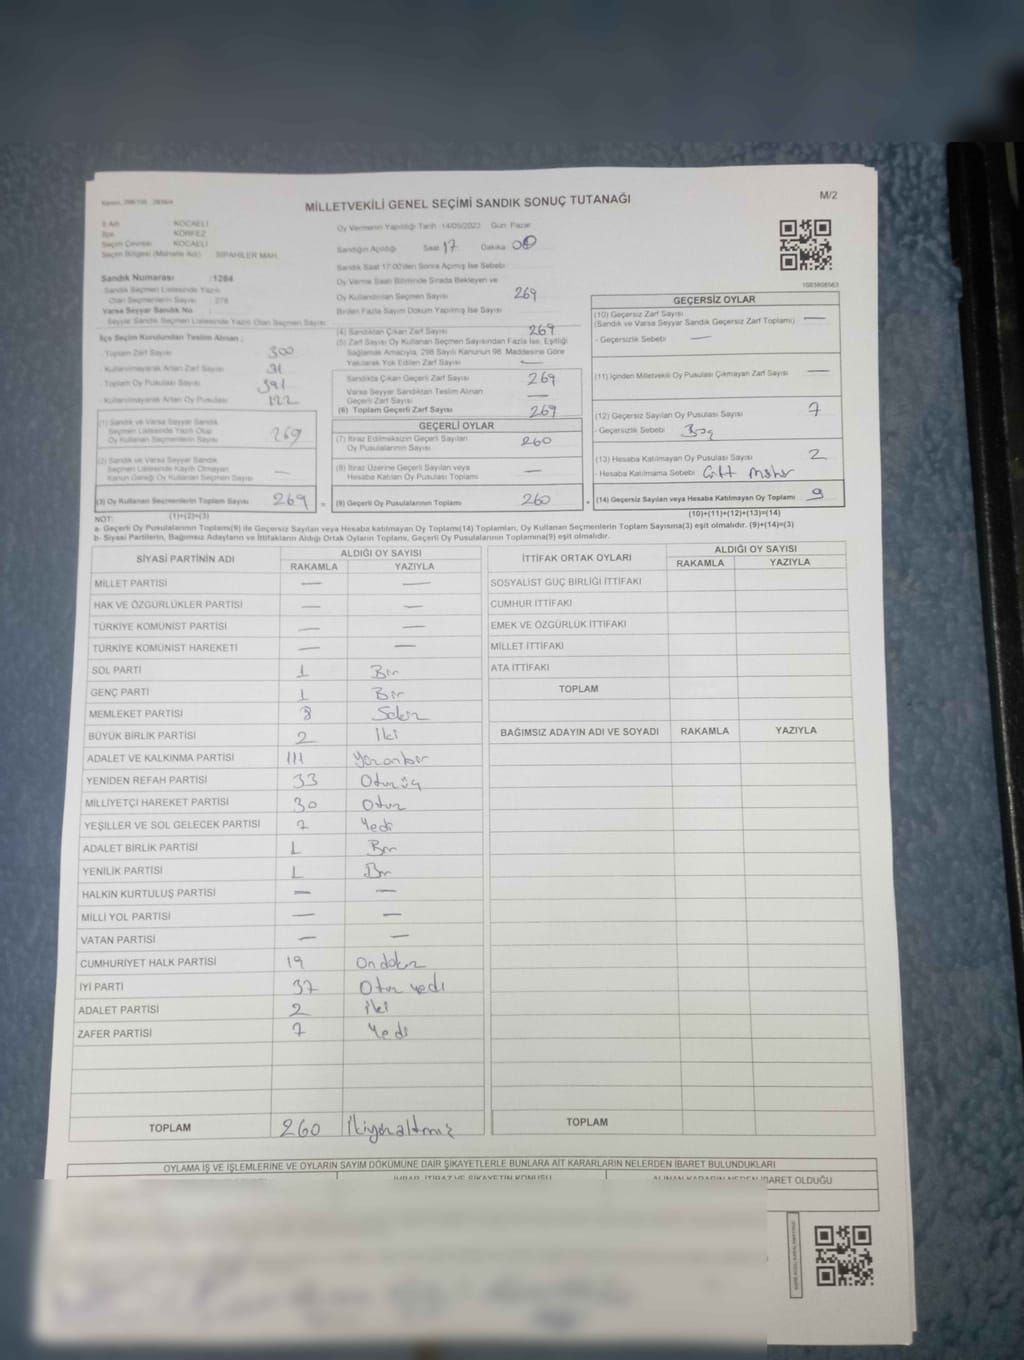 MİLLETVEKİLİ GENEL SEÇİMİ SANDIK SONUÇ TUTANAĞI
M/2
İl Adı : KOCAELİ
İlçe : KÖRFEZ
Seçim Çevresi : KOCAELİ
Seçim Bölgesi (Mahalle Adı) : SİPAHİLER MAH.
Sandık Numarası : 1284
Sandık Seçmen Listesinde Yazılı
Olan Seçmenlerin Sayısı : 278
Varsa Seyyar Sandık No
Seyyar Sandık Seçmen Listesinde Yazılı Olan Seçmen Sayısı
İlçe Seçim Kurulundan Teslim Alınan :
- Toplam Zarf Sayısı 300
- Kullanılmayarak Artan Zarf Sayısı 31
- Toplam Oy Pusulası Sayısı 391
- Kullanılmayarak Artan Oy Pusulası 122
(1) Sandık ve Varsa Seyyar Sandık
Seçmen Listesinde Yazılı Olup
Oy Kullanan Seçmenlerin Sayısı 269
(2) Sandık ve Varsa Seyyar Sandık
Seçmen Listesinde Kayıtlı Olmayan
Kanun Gereği Oy Kullanan Seçmen Sayısı —
(3) Oy Kullanan Seçmenlerin Toplam Sayısı 269 =
(1)+(2)=(3)
Oy Vermenin Yapıldığı Tarih 14/05/2023 Gün Pazar
Sandığın Açıldığı Saat 17 Dakika 00
Sandık Saat 17:00'den Sonra Açılmış İse Sebebi
Oy Verme Saati Bitiminde Sırada Bekleyen ve
Oy Kullandırılan Seçmen Sayısı 269
Birden Fazla Sayım Döküm Yapılmış İse Sayısı
(4) Sandıktan Çıkan Zarf Sayısı 269
(5) Zarf Sayısı Oy Kullanan Seçmen Sayısından Fazla İse, Eşitliği
Sağlamak Amacıyla, 298 Sayılı Kanunun 98. Maddesine Göre
Yakılarak Yok Edilen Zarf Sayısı —
Sandıkta Çıkan Geçerli Zarf Sayısı 269
Varsa Seyyar Sandıktan Teslim Alınan
Geçerli Zarf Sayısı —
(6) Toplam Geçerli Zarf Sayısı 269
GEÇERLİ OYLAR
(7) İtiraz Edilmeksizin Geçerli Sayılan
Oy Pusulalarının Sayısı 260
(8) İtiraz Üzerine Geçerli Sayılan veya
Hesaba Katılan Oy Pusulaları Toplamı —
(9) Geçerli Oy Pusulalarının Toplamı 260 +
1083808563
GEÇERSİZ OYLAR
(10) Geçersiz Zarf Sayısı —
(Sandık ve Varsa Seyyar Sandık Geçersiz Zarf Toplamı)
- Geçersizlik Sebebi —
(11) İçinden Milletvekili Oy Pusulası Çıkmayan Zarf Sayısı —
(12) Geçersiz Sayılan Oy Pusulası Sayısı 7
- Geçersizlik Sebebi Boş
(13) Hesaba Katılmayan Oy Pusulası Sayısı 2
- Hesaba Katılmama Sebebi
(14) Geçersiz Sayılan veya Hesaba Katılmayan Oy Toplamı 9
(10)+(11)+(12)+(13)=(14)
NOT:
a- Geçerli Oy Pusulalarının Toplamı(9) ile Geçersiz Sayılan veya Hesaba katılmayan Oy Toplamı(14) Toplamları, Oy Kullanan Seçmenlerin Toplam Sayısına(3) eşit olmalıdır. (9)+(14)=(3)
b- Siyasi Partilerin, Bağımsız Adayların ve İttifakların Aldığı Ortak Oyların Toplamı, Geçerli Oy Pusulalarının Toplamına(9) eşit olmalıdır.
SİYASİ PARTİNİN ADI ALDIĞI OY SAYISI
RAKAMLA YAZIYLA
MİLLET PARTİSİ — —
HAK VE ÖZGÜRLÜKLER PARTİSİ — —
TÜRKİYE KOMÜNİST PARTİSİ — —
TÜRKİYE KOMÜNİST HAREKETİ — —
SOL PARTİ 1 Bir
GENÇ PARTİ 1 Bir
MEMLEKET PARTİSİ 8 Sekiz
BÜYÜK BİRLİK PARTİSİ 2 İki
ADALET VE KALKINMA PARTİSİ 111 Yüzonbir
YENİDEN REFAH PARTİSİ 33 Otuzüç
MİLLİYETÇİ HAREKET PARTİSİ 30 Otuz
YEŞİLLER VE SOL GELECEK PARTİSİ 7 Yedi
ADALET BİRLİK PARTİSİ 1 Bir
YENİLİK PARTİSİ 1 Bir
HALKIN KURTULUŞ PARTİSİ — —
MİLLİ YOL PARTİSİ — —
VATAN PARTİSİ — —
CUMHURİYET HALK PARTİSİ 19 Ondokuz
İYİ PARTİ 37 Otuz yedi
ADALET PARTİSİ 2 İki
ZAFER PARTİSİ 7 Yedi
TOPLAM 260 İkiyüzaltmış
İTTİFAK ORTAK OYLARI ALDIĞI OY SAYISI
RAKAMLA YAZIYLA
SOSYALİST GÜÇ BİRLİĞİ İTTİFAKI
CUMHUR İTTİFAKI
EMEK VE ÖZGÜRLÜK İTTİFAKI
MİLLET İTTİFAKI
ATA İTTİFAKI
TOPLAM
BAĞIMSIZ ADAYIN ADI VE SOYADI RAKAMLA YAZIYLA
TOPLAM
OYLAMA İŞ VE İŞLEMLERİNE VE OYLARIN SAYIM DÖKÜMÜNE DAİR ŞİKAYETLERLE BUNLARA AİT KARARLARIN NELERDEN İBARET BULUNDUKLARI
İHBAR, İTİRAZ VE ŞİKAYETİN KONUSU ALINAN KARARIN NEDEN İBARET OLDUĞU